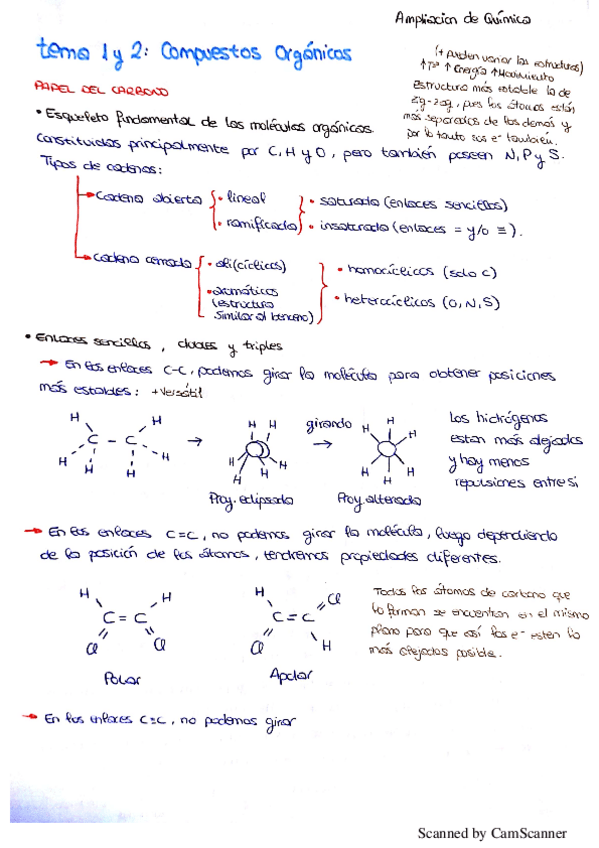 Ampliacion de Química
tema 1 y 2: Compuestos Orgánicos
(+ pueden variar las estructuras)
↑Tª ↑ Energía ↑ Movimiento
Estructura más estable la de
zig-zag, pues los átomos están
más separados de los demás y
por lo tanto sus e⁻ también.
PAPEL DEL CARBONO
• Esqueleto fundamental de las moléculas orgánicas.
Constituidas principalmente por C, H y O, pero también poseen N, P y S.
Tipos de cadenas:
Cadena abierta { • lineal } • saturada (enlaces sencillos)
• ramificada • insaturada (enlaces = y/o ≡).
Cadena cerrada { • ali(cíclicos) } • homocíclicos (solo C)
• aromáticos • heterocíclicos (O, N, S)
(estructura
similar al benceno)
• Enlaces sencillos, dobles y triples
→ En los enlaces C-C, podemos girar la molécula para obtener posiciones
más estables: + versátil
H H
C - C
H H H H
→
H H
H H H H
Proy. eclipsada
girando
→
H
H H
H H
H
Proy. alternada
Los hidrógenos
estan más alejados
y hay menos
repulsiones entre sí
→ En los enlaces C=C, no podemos girar la molécula, luego dependiendo
de la posición de los átomos, tendremos propiedades diferentes.
H H
C = C
Cl Cl
Polar
H Cl
C = C
Cl H
Apolar
Todos los átomos de carbono que
lo forman se encuentran en el mismo
plano para que así los e⁻ estén lo
más alejados posible.
→ En los enlaces C≡C, no podemos girar
Scanned by CamScanner